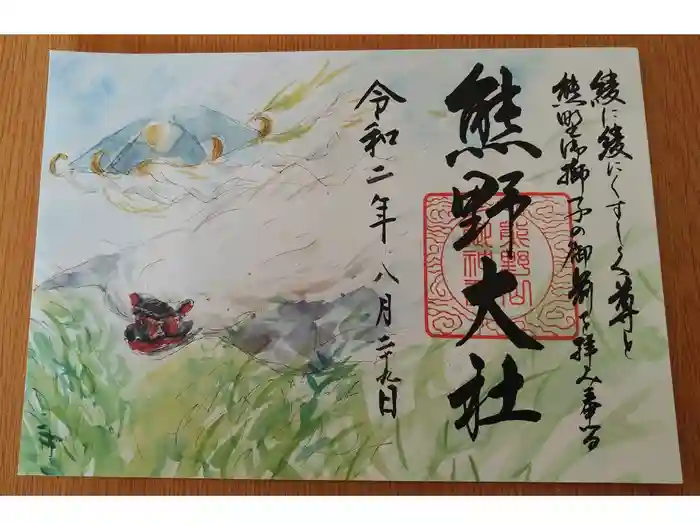 綾に綾にくすしく尊と
熊野大御獅子の御前を拝み奉る
熊野大社
令和二年八月二十九日